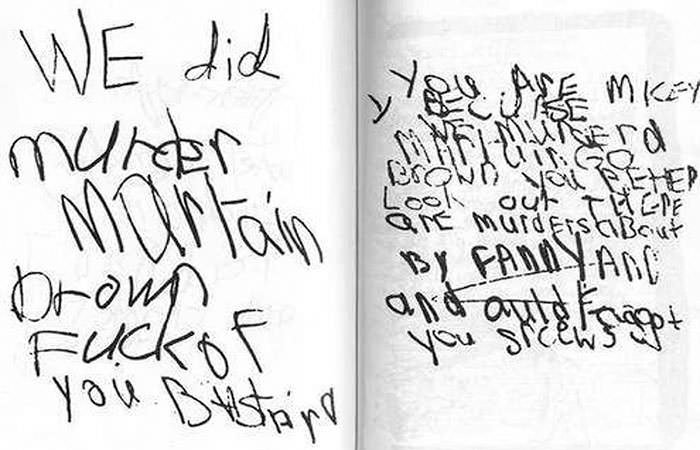 WE did
murder
Martain
brown
Fuckof
you BAstard
you ArE micEy
y BECuSE
WE murderd
MArtain GO
Brown you BEttER
Look out THErE
arE murdErs aBout
By FANNYAND
and auld Faggot
you srcews